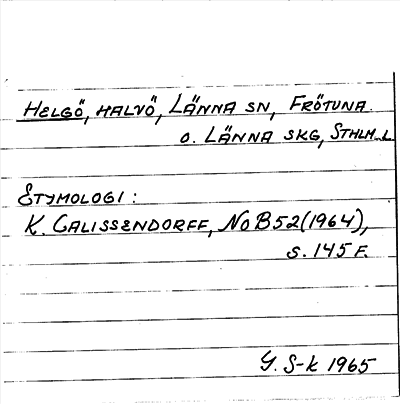 HELGÖ, HALVÖ, LÄNNA SN, FRÖTUNA
O. LÄNNA SKG, STHLM L
ETYMOLOGI:
K. CALISSENDORFF, NoB 52 (1964),
S. 145 F.
G. S-k 1965